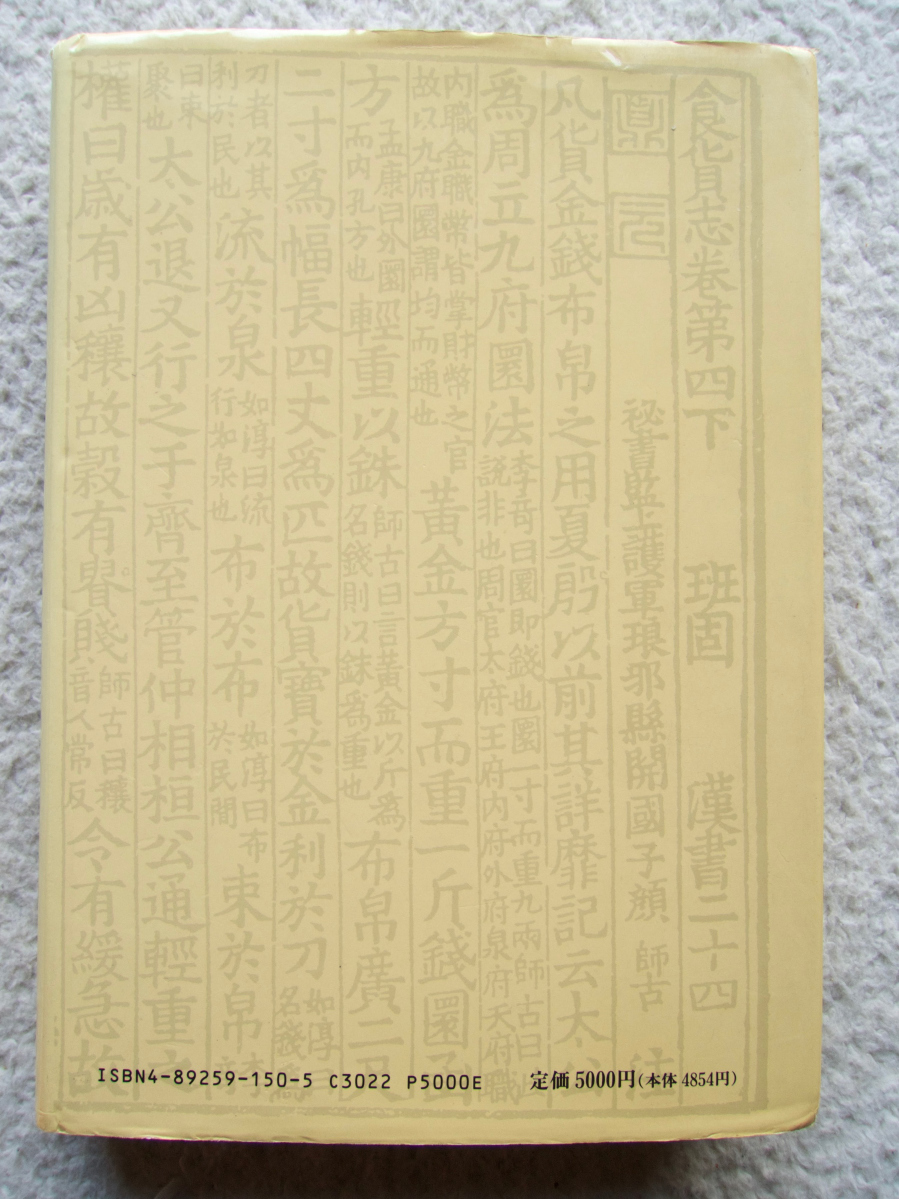 食貨志卷第四下 班固 漢書二十四
鼎 元 祕書監上護軍琅邪縣開國子顏 師古 注
凡貨金錢布帛之用夏殷以前其詳靡記云太公
爲周立九府圜法 李奇曰圜即錢也圜一寸而重九兩師古曰 說非也周官太府王府内府外府泉府天府職
内職金職幣皆掌財幣之官 故以九府圜謂均而通也 黃金方寸而重一斤錢圜函
方 孟康曰外圜 而内孔方也 輕重以銖 師古曰言黃金以斤爲 名錢則以銖爲重也 布帛廣二尺
二寸爲幅長四丈爲匹故貨寶於金利於刀 如淳 名錢爲
刀者以其 利於民也 流於泉 如淳曰流 行如泉也 布於布 如淳曰布 於民間 束於帛
曰束 聚也 太公退又行之于齊至管仲相桓公通輕重之
權曰歲有凶穰故穀有貴賤 師古曰穰 音人常反 令有緩急故
ISBN4-89259-150-5 C3022 P5000E 定価 5000円(本体 4854円)